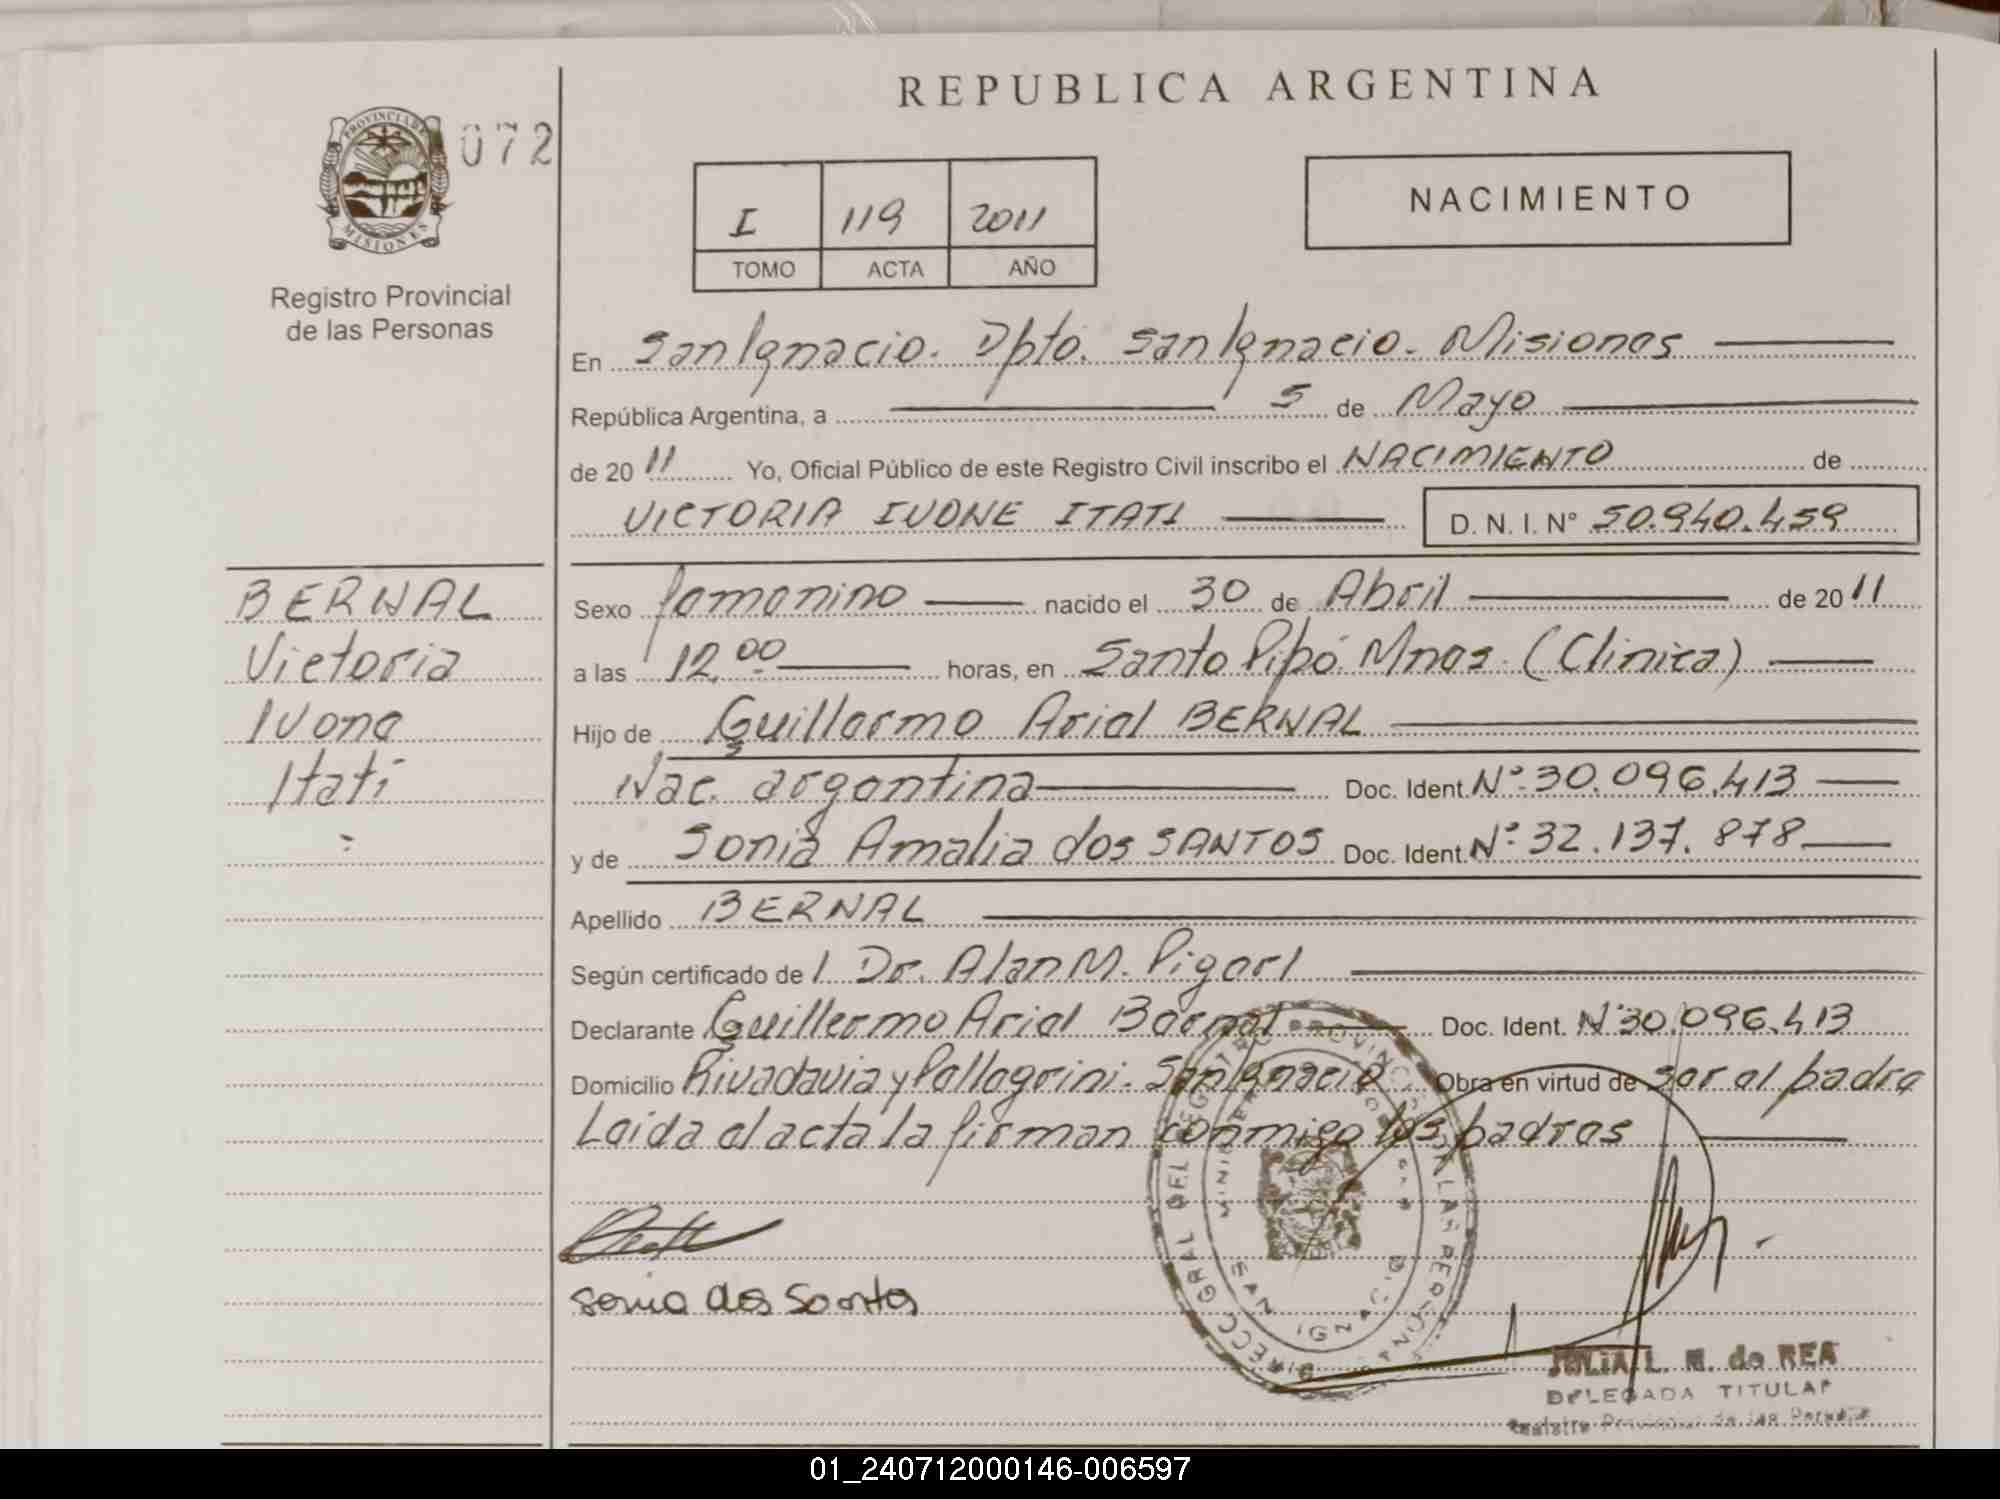 REPUBLICA ARGENTINA
PROVINCIA DE
MISIONES
072
Registro Provincial
de las Personas
I 119 2011
TOMO ACTA AÑO
NACIMIENTO
En San Ignacio. Dpto. San Ignacio. Misiones
República Argentina, a 5 de Mayo
de 20 11 Yo, Oficial Público de este Registro Civil inscribo el NACIMIENTO de
VICTORIA IVONE ITATI D. N. I. N° 50.940.459
BERNAL
Victoria
Ivone
Itatí
Sexo femenino nacido el 30 de Abril de 20 11
a las 12,00 horas, en Santo Pipó. Mnes. (Clinica)
Hijo de Guillermo Ariel BERNAL
Nac. argentina Doc. Ident. N°. 30.096.413
y de Sonia Amalia dos SANTOS Doc. Ident. N°. 32.137.878
Apellido BERNAL
Según certificado de Dr. Alan M.
Declarante Guillermo Ariel Bernal Doc. Ident. N° 30.096.413
Domicilio Rivadavia y Pellegrini. San Ignacio Obra en virtud de ser el padre
Leida el acta la firman conmigo los padres
sonia dos Santos
DIRECC. GRAL DEL REGISTRO PROVINCIAL DE LAS PERSONAS
SAN IGNACIO
JULIA L. M. de REA
DELEGADA TITULAR
Registro Provincial de las Personas
01_240712000146-006597